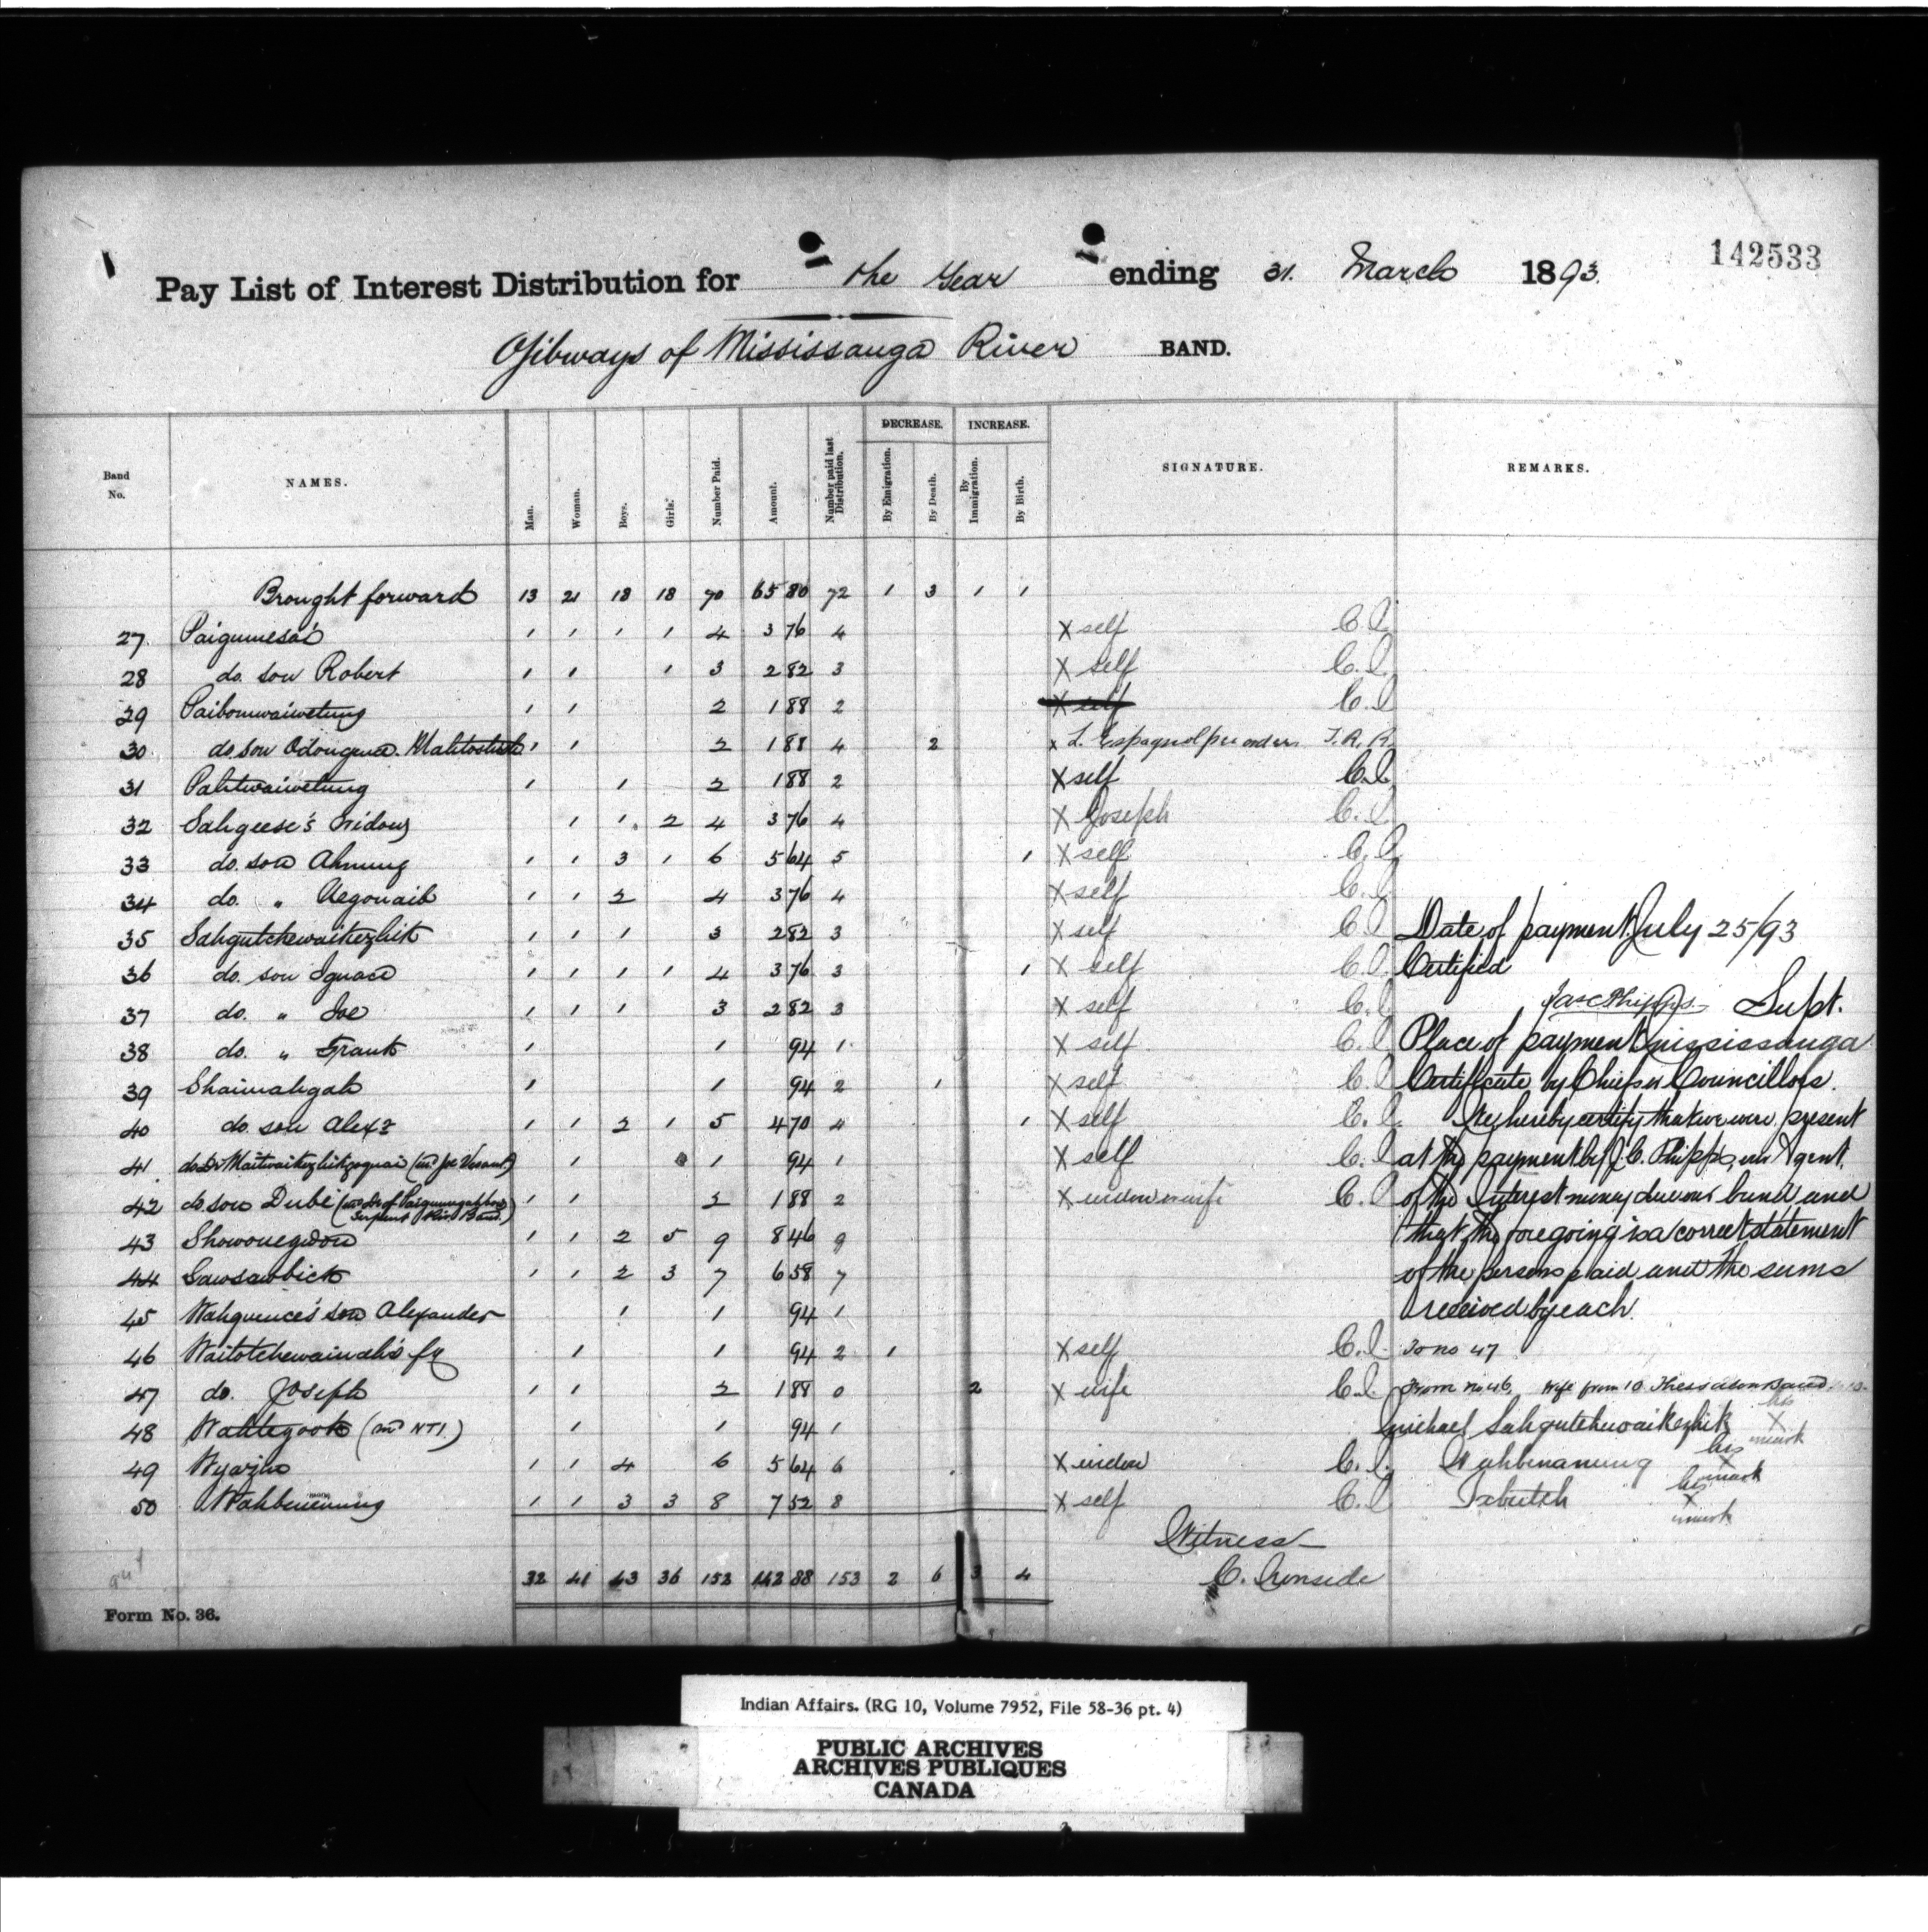 142533
Pay List of Interest Distribution for the Year ending 31. March 1893.
Ojibways of Mississauga River BAND.
Band No. NAMES. Man. Woman. Boys. Girls. Number Paid. Amount. Number paid last Distribution. DECREASE. By Emigration. By Death. INCREASE. By Immigration. By Birth. SIGNATURE. REMARKS.
Brought forward 13 21 18 18 70 65 80 72 1 3 1 1
27. Paigumesai 1 1 1 1 4 3 76 4 X self C.I.
28 do. son Robert 1 1 1 3 2 82 3 X self C.I.
29 Paibomwaiwetung 1 1 2 1 88 2 X self C.I.
30 do. son Odongence. Mahtoshish 1 1 2 1 88 4 2 x L. Espagnol per order. T.R.R.
31 Pahtwaiwetung 1 1 2 1 88 2 X self C.I.
32 Sahgeese's Widow 1 1. 2 4 3 76 4 X Joseph C.I.
33 do. son Ahnung 1 1 3 1 6 5 64 5 1 X self C.I.
34 do. " Aegonaib 1 1 2 4 3 76 4 X self C.I.
35 Sahgutchewaikezhik 1 1 1 3 2 82 3 X self C.I. Date of payment. July 25/93
36 do. son Ignace 1 1 1 1 4 3 76 3 1 X self C.I. Certified
37 do. " Joe 1 1 1 3 2 82 3 X self C.I. Jas C Phipps. Supt.
38 do. " Frank 1 1 94 1 X self C.I. Place of payment Mississauga
39 Shaimahgah 1 1 94 2 1 X self C.I. Certificate by Chiefs or Councillors.
40 do. son Alexr 1 1 2 1 5 4 70 4 1 X self C.I. We hereby certify that we were present
41. do. Dr Maitwaikezhikgoquai (md. Joe Vesant.) 1 1 94 1 X self C.I. at the payment by J.C. Phipps, an Agent.
42 do. son Dubé (md Dr of Paigumgahbow Serpent Riv. Band.) 1 1 2 1 88 2 X widow wife C.I. of the Interest money due our band and
43 Showonegwon 1 1 2 5 9 8 46 9 that the foregoing is a correct statement
44 Sawsawbick 1 1 2 3 7 6 58 7 of the persons paid and the sums
45 Wahquence's son Alexander 1 1 94 1 received by each.
46 Waitotchewainah's fy 1 1 94 2 1 X self C.I. To no 47
47 do. Joseph 1 1 2 1 88 0 2 X wife C.I. From no. 46, Wife from 10 Thessalon Band
48 Wahtegook (md NTI.) 1 1 94 1 Michael Sahgutchewaikezhik his X mark
49 Wyazho 1 1 4 6 5 64 6 X widow C.I. Wahbenanung his X mark
50 Wahbenenung 1 1 3 3 8 7 52 8 X self C.I. Tabutch his X mark
Witness
32 41 43 36 152 142 88 153 2 6 3 4 C. Ironside
Form No. 36.
Indian Affairs. (RG 10, Volume 7952, File 58-36 pt. 4)
PUBLIC ARCHIVES
ARCHIVES PUBLIQUES
CANADA